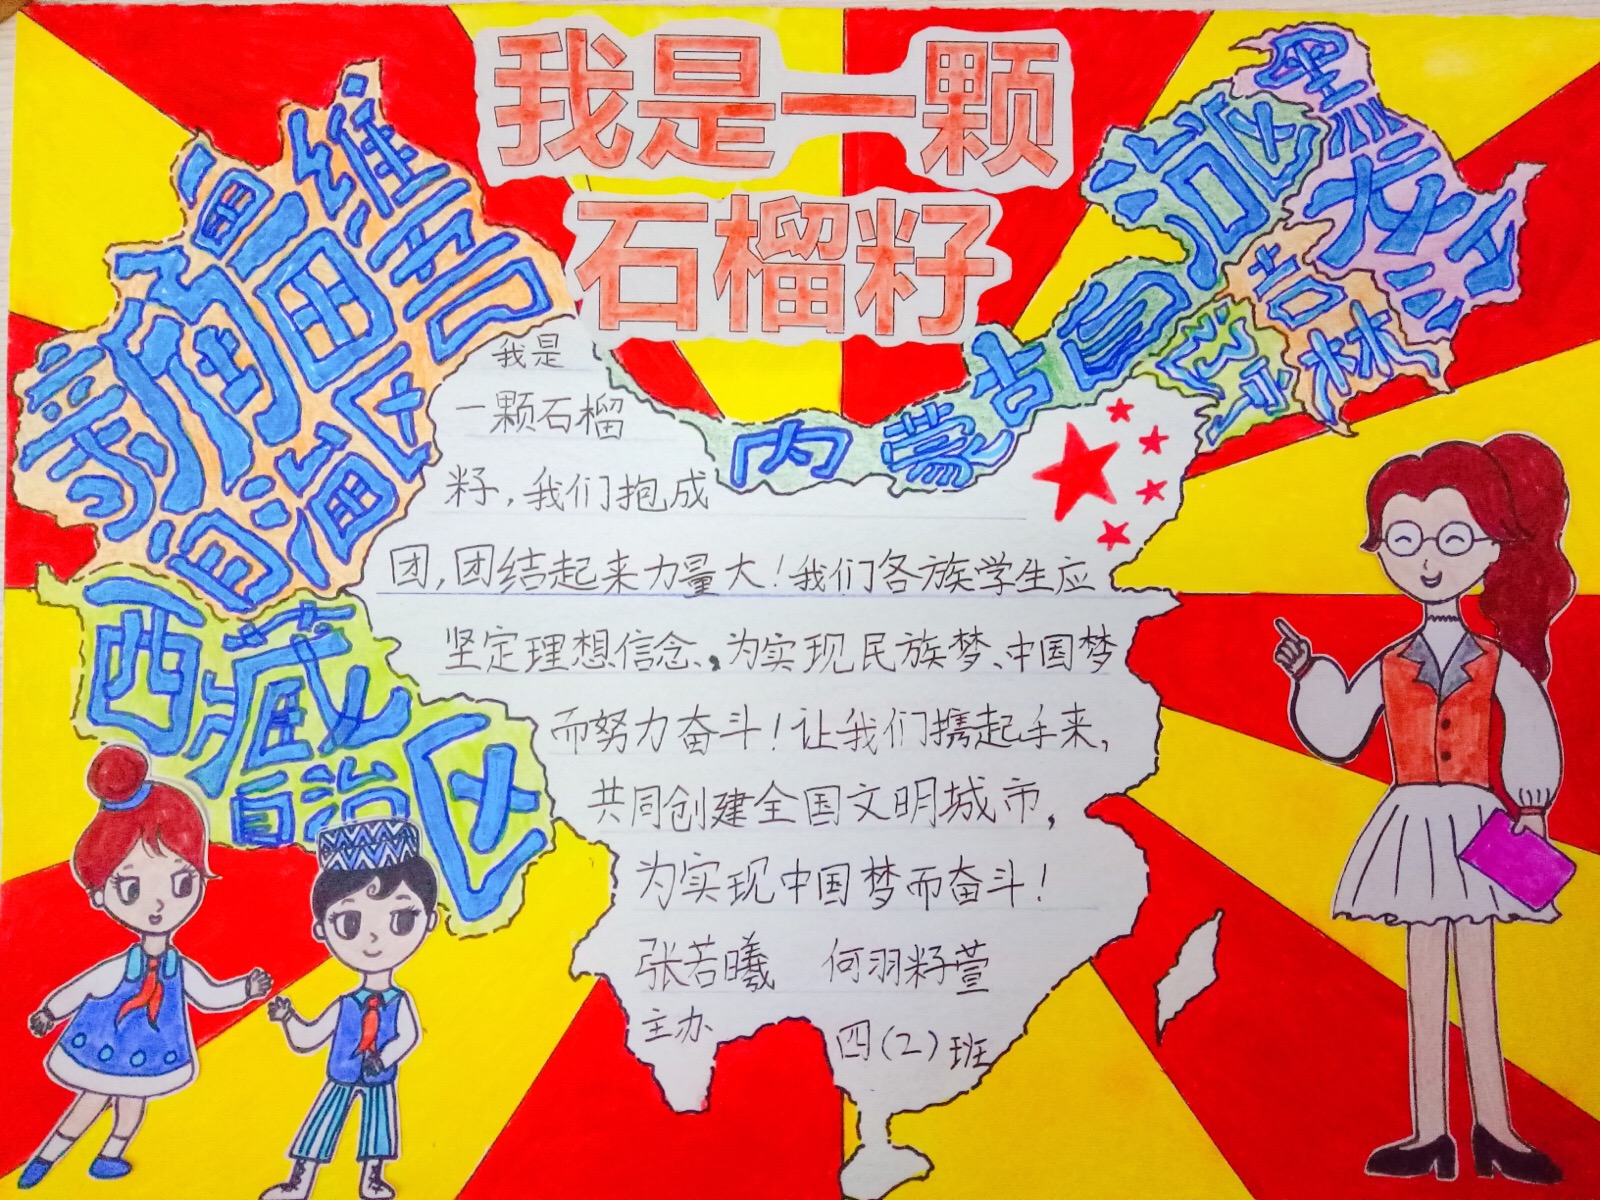 我是一颗
石榴籽
新疆维吾尔
自治区
西藏
自治区
内蒙古自治区
黑龙江
吉林
辽宁
我是
一颗石榴
籽，我们抱成
团，团结起来力量大！我们各族学生应
坚定理想信念、，为实现民族梦、中国梦
而努力奋斗！让我们携起手来，
共同创建全国文明城市，
为实现中国梦而奋斗！
张若曦 何羽籽萱
主办
四（2）班